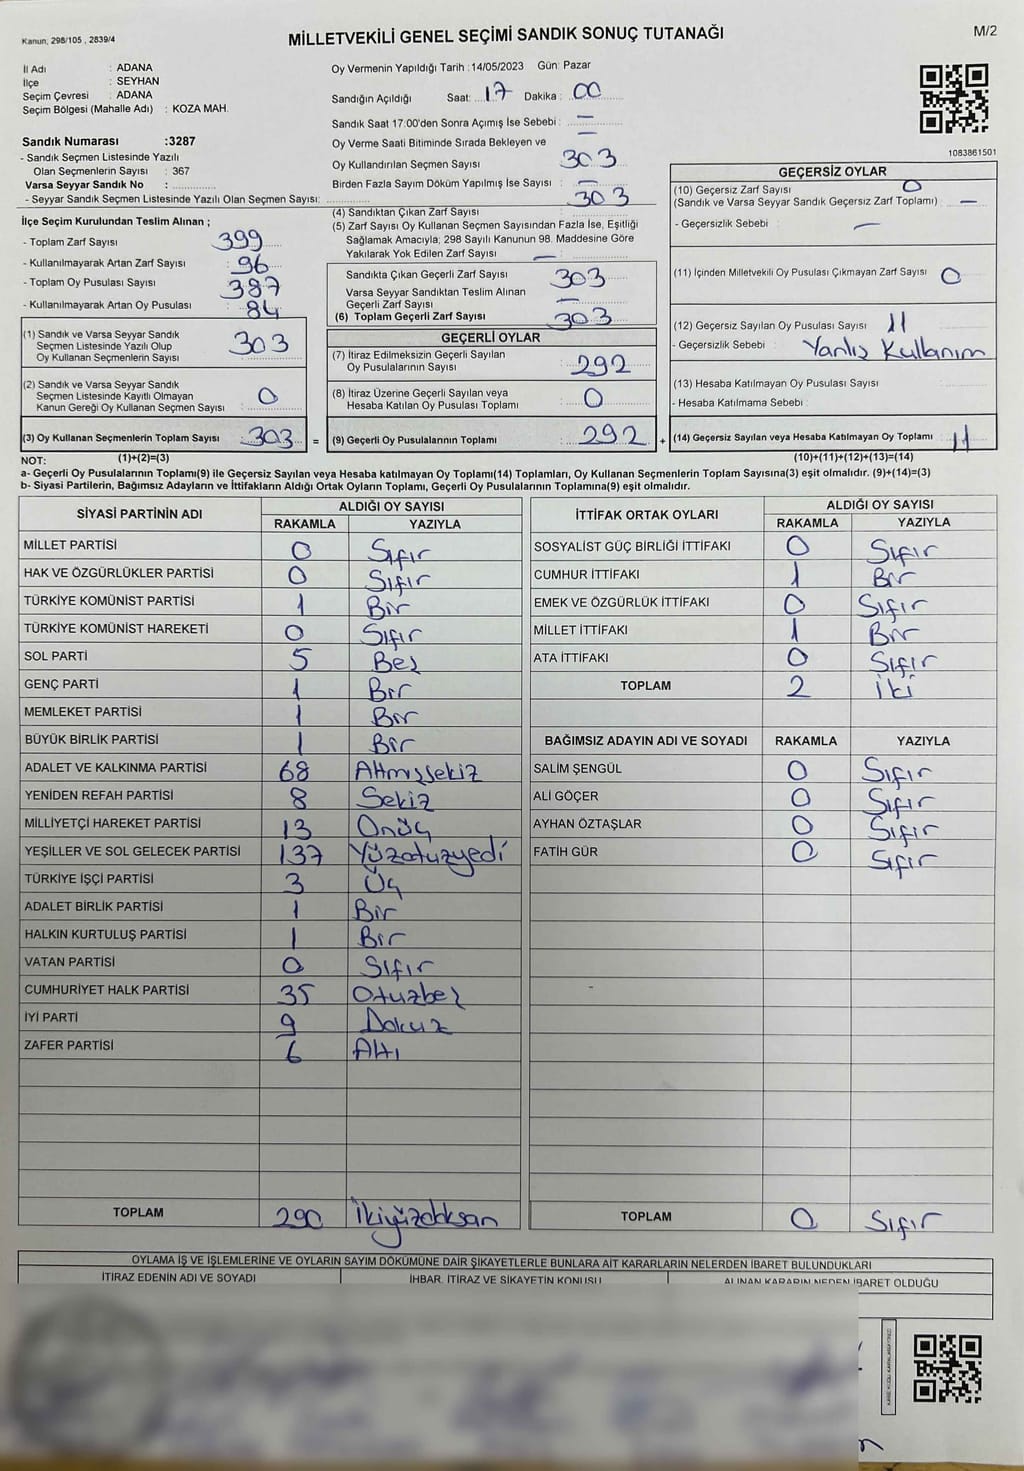 Kanun, 298/105 , 2839/4
MİLLETVEKİLİ GENEL SEÇİMİ SANDIK SONUÇ TUTANAĞI
M/2
İl Adı : ADANA
İlçe : SEYHAN
Seçim Çevresi : ADANA
Seçim Bölgesi (Mahalle Adı) : KOZA MAH.
Sandık Numarası :3287
- Sandık Seçmen Listesinde Yazılı
Olan Seçmenlerin Sayısı : 367
Varsa Seyyar Sandık No : ............
- Seyyar Sandık Seçmen Listesinde Yazılı Olan Seçmen Sayısı:
Oy Vermenin Yapıldığı Tarih :14/05/2023 Gün: Pazar
Sandığın Açıldığı Saat: 17 Dakika : 00
Sandık Saat 17:00'den Sonra Açımış İse Sebebi : —
Oy Verme Saati Bitiminde Sırada Bekleyen ve —
Oy Kullandırılan Seçmen Sayısı 303
Birden Fazla Sayım Döküm Yapılmış İse Sayısı : —
1083861501
İlçe Seçim Kurulundan Teslim Alınan ;
- Toplam Zarf Sayısı 399
- Kullanılmayarak Artan Zarf Sayısı 96
- Toplam Oy Pusulası Sayısı 387
- Kullanılmayarak Artan Oy Pusulası : 84
(1) Sandık ve Varsa Seyyar Sandık
Seçmen Listesinde Yazılı Olup
Oy Kullanan Seçmenlerin Sayısı 303
(2) Sandık ve Varsa Seyyar Sandık
Seçmen Listesinde Kayıtlı Olmayan
Kanun Gereği Oy Kullanan Seçmen Sayısı 0
(3) Oy Kullanan Seçmenlerin Toplam Sayısı 303 =
(4) Sandıktan Çıkan Zarf Sayısı 303
(5) Zarf Sayısı Oy Kullanan Seçmen Sayısından Fazla İse, Eşitliği
Sağlamak Amacıyla; 298 Sayılı Kanunun 98. Maddesine Göre
Yakılarak Yok Edilen Zarf Sayısı —
Sandıkta Çıkan Geçerli Zarf Sayısı 303
Varsa Seyyar Sandıktan Teslim Alınan
Geçerli Zarf Sayısı —
(6) Toplam Geçerli Zarf Sayısı 303
GEÇERLİ OYLAR
(7) İtiraz Edilmeksizin Geçerli Sayılan
Oy Pusulalarının Sayısı 292
(8) İtiraz Üzerine Geçerli Sayılan veya
Hesaba Katılan Oy Pusulası Toplamı 0
(9) Geçerli Oy Pusulalarının Toplamı 292 +
GEÇERSİZ OYLAR
(10) Geçersiz Zarf Sayısı 0
(Sandık ve Varsa Seyyar Sandık Geçersiz Zarf Toplamı) : —
- Geçersizlik Sebebi : —
(11) İçinden Milletvekili Oy Pusulası Çıkmayan Zarf Sayısı : 0
(12) Geçersiz Sayılan Oy Pusulası Sayısı : 11
- Geçersizlik Sebebi : Yanlış Kullanım
(13) Hesaba Katılmayan Oy Pusulası Sayısı
- Hesaba Katılmama Sebebi :
(14) Geçersiz Sayılan veya Hesaba Katılmayan Oy Toplamı : 11
NOT: (1)+(2)=(3)
(10)+(11)+(12)+(13)=(14)
a- Geçerli Oy Pusulalarının Toplamı(9) ile Geçersiz Sayılan veya Hesaba katılmayan Oy Toplamı(14) Toplamları, Oy Kullanan Seçmenlerin Toplam Sayısına(3) eşit olmalıdır. (9)+(14)=(3)
b- Siyasi Partilerin, Bağımsız Adayların ve İttifakların Aldığı Ortak Oyların Toplamı, Geçerli Oy Pusulalarının Toplamına(9) eşit olmalıdır.
SİYASİ PARTİNİN ADI
ALDIĞI OY SAYISI
RAKAMLA YAZIYLA
MİLLET PARTİSİ 0 Sıfır
HAK VE ÖZGÜRLÜKLER PARTİSİ 0 Sıfır
TÜRKİYE KOMÜNİST PARTİSİ 1 Bir
TÜRKİYE KOMÜNİST HAREKETİ 0 Sıfır
SOL PARTİ 5 Beş
GENÇ PARTİ 1 Bir
MEMLEKET PARTİSİ 1 Bir
BÜYÜK BİRLİK PARTİSİ 1 Bir
ADALET VE KALKINMA PARTİSİ 68 Altmışsekiz
YENİDEN REFAH PARTİSİ 8 Sekiz
MİLLİYETÇİ HAREKET PARTİSİ 13 Onüç
YEŞİLLER VE SOL GELECEK PARTİSİ 137 Yüzotuzyedi
TÜRKİYE İŞÇİ PARTİSİ 3 Üç
ADALET BİRLİK PARTİSİ 1 Bir
HALKIN KURTULUŞ PARTİSİ 1 Bir
VATAN PARTİSİ 0 Sıfır
CUMHURİYET HALK PARTİSİ 35 Otuzbeş
İYİ PARTİ 9 Dokuz
ZAFER PARTİSİ 6 Altı
TOPLAM 290 İkiyüzdoksan
İTTİFAK ORTAK OYLARI
ALDIĞI OY SAYISI
RAKAMLA YAZIYLA
SOSYALİST GÜÇ BİRLİĞİ İTTİFAKI 0 Sıfır
CUMHUR İTTİFAKI 1 Bir
EMEK VE ÖZGÜRLÜK İTTİFAKI 0 Sıfır
MİLLET İTTİFAKI 1 Bir
ATA İTTİFAKI 0 Sıfır
TOPLAM 2 İki
BAĞIMSIZ ADAYIN ADI VE SOYADI RAKAMLA YAZIYLA
SALİM ŞENGÜL 0 Sıfır
ALİ GÖÇER 0 Sıfır
AYHAN ÖZTAŞLAR 0 Sıfır
FATİH GÜR 0 Sıfır
TOPLAM 0 Sıfır
OYLAMA İŞ VE İŞLEMLERİNE VE OYLARIN SAYIM DÖKÜMÜNE DAİR ŞİKAYETLERLE BUNLARA AİT KARARLARIN NELERDEN İBARET BULUNDUKLARI
İTİRAZ EDENİN ADI VE SOYADI İHBAR, İTİRAZ VE ŞİKAYETİN KONUSU ALINAN KARARIN NEDEN İBARET OLDUĞU